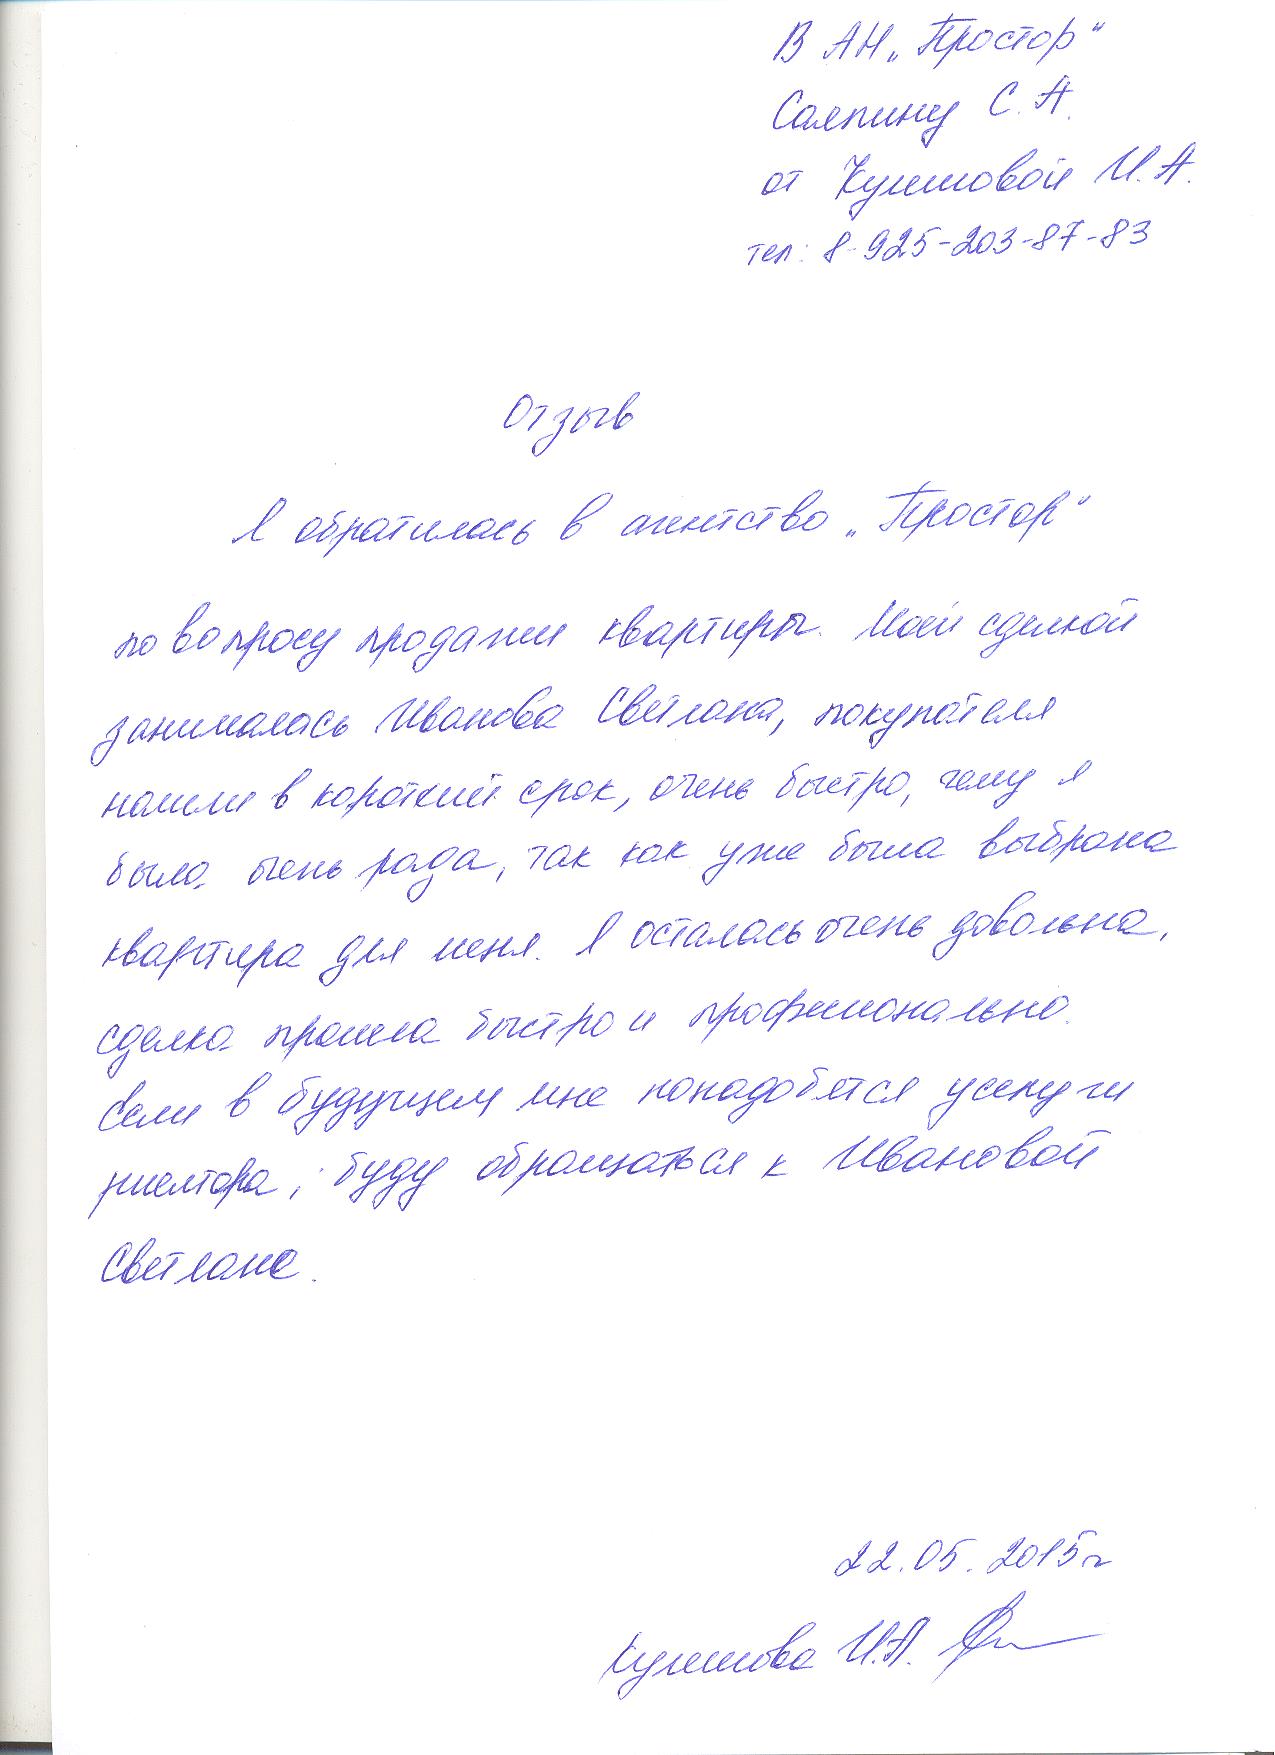 В АН „Простор“
Саяпину С. А.
от Кулешовой И. А.
тел: 8-925-203-87-83
Отзыв
Я обратилась в агентство „Простор“
по вопросу продажи квартиры. Моей сделкой
занималась Иванова Светлана, покупателя
нашли в короткий срок, очень быстро, чему я
была очень рада, так как уже была выбрана
квартира для меня. Я осталась очень довольна,
сделка прошла быстро и профессионально.
Если в будущем мне понадобятся услуги
риелтора, буду обращаться к Ивановой
Светлане.
22.05.2015г
Кулешова И.А.